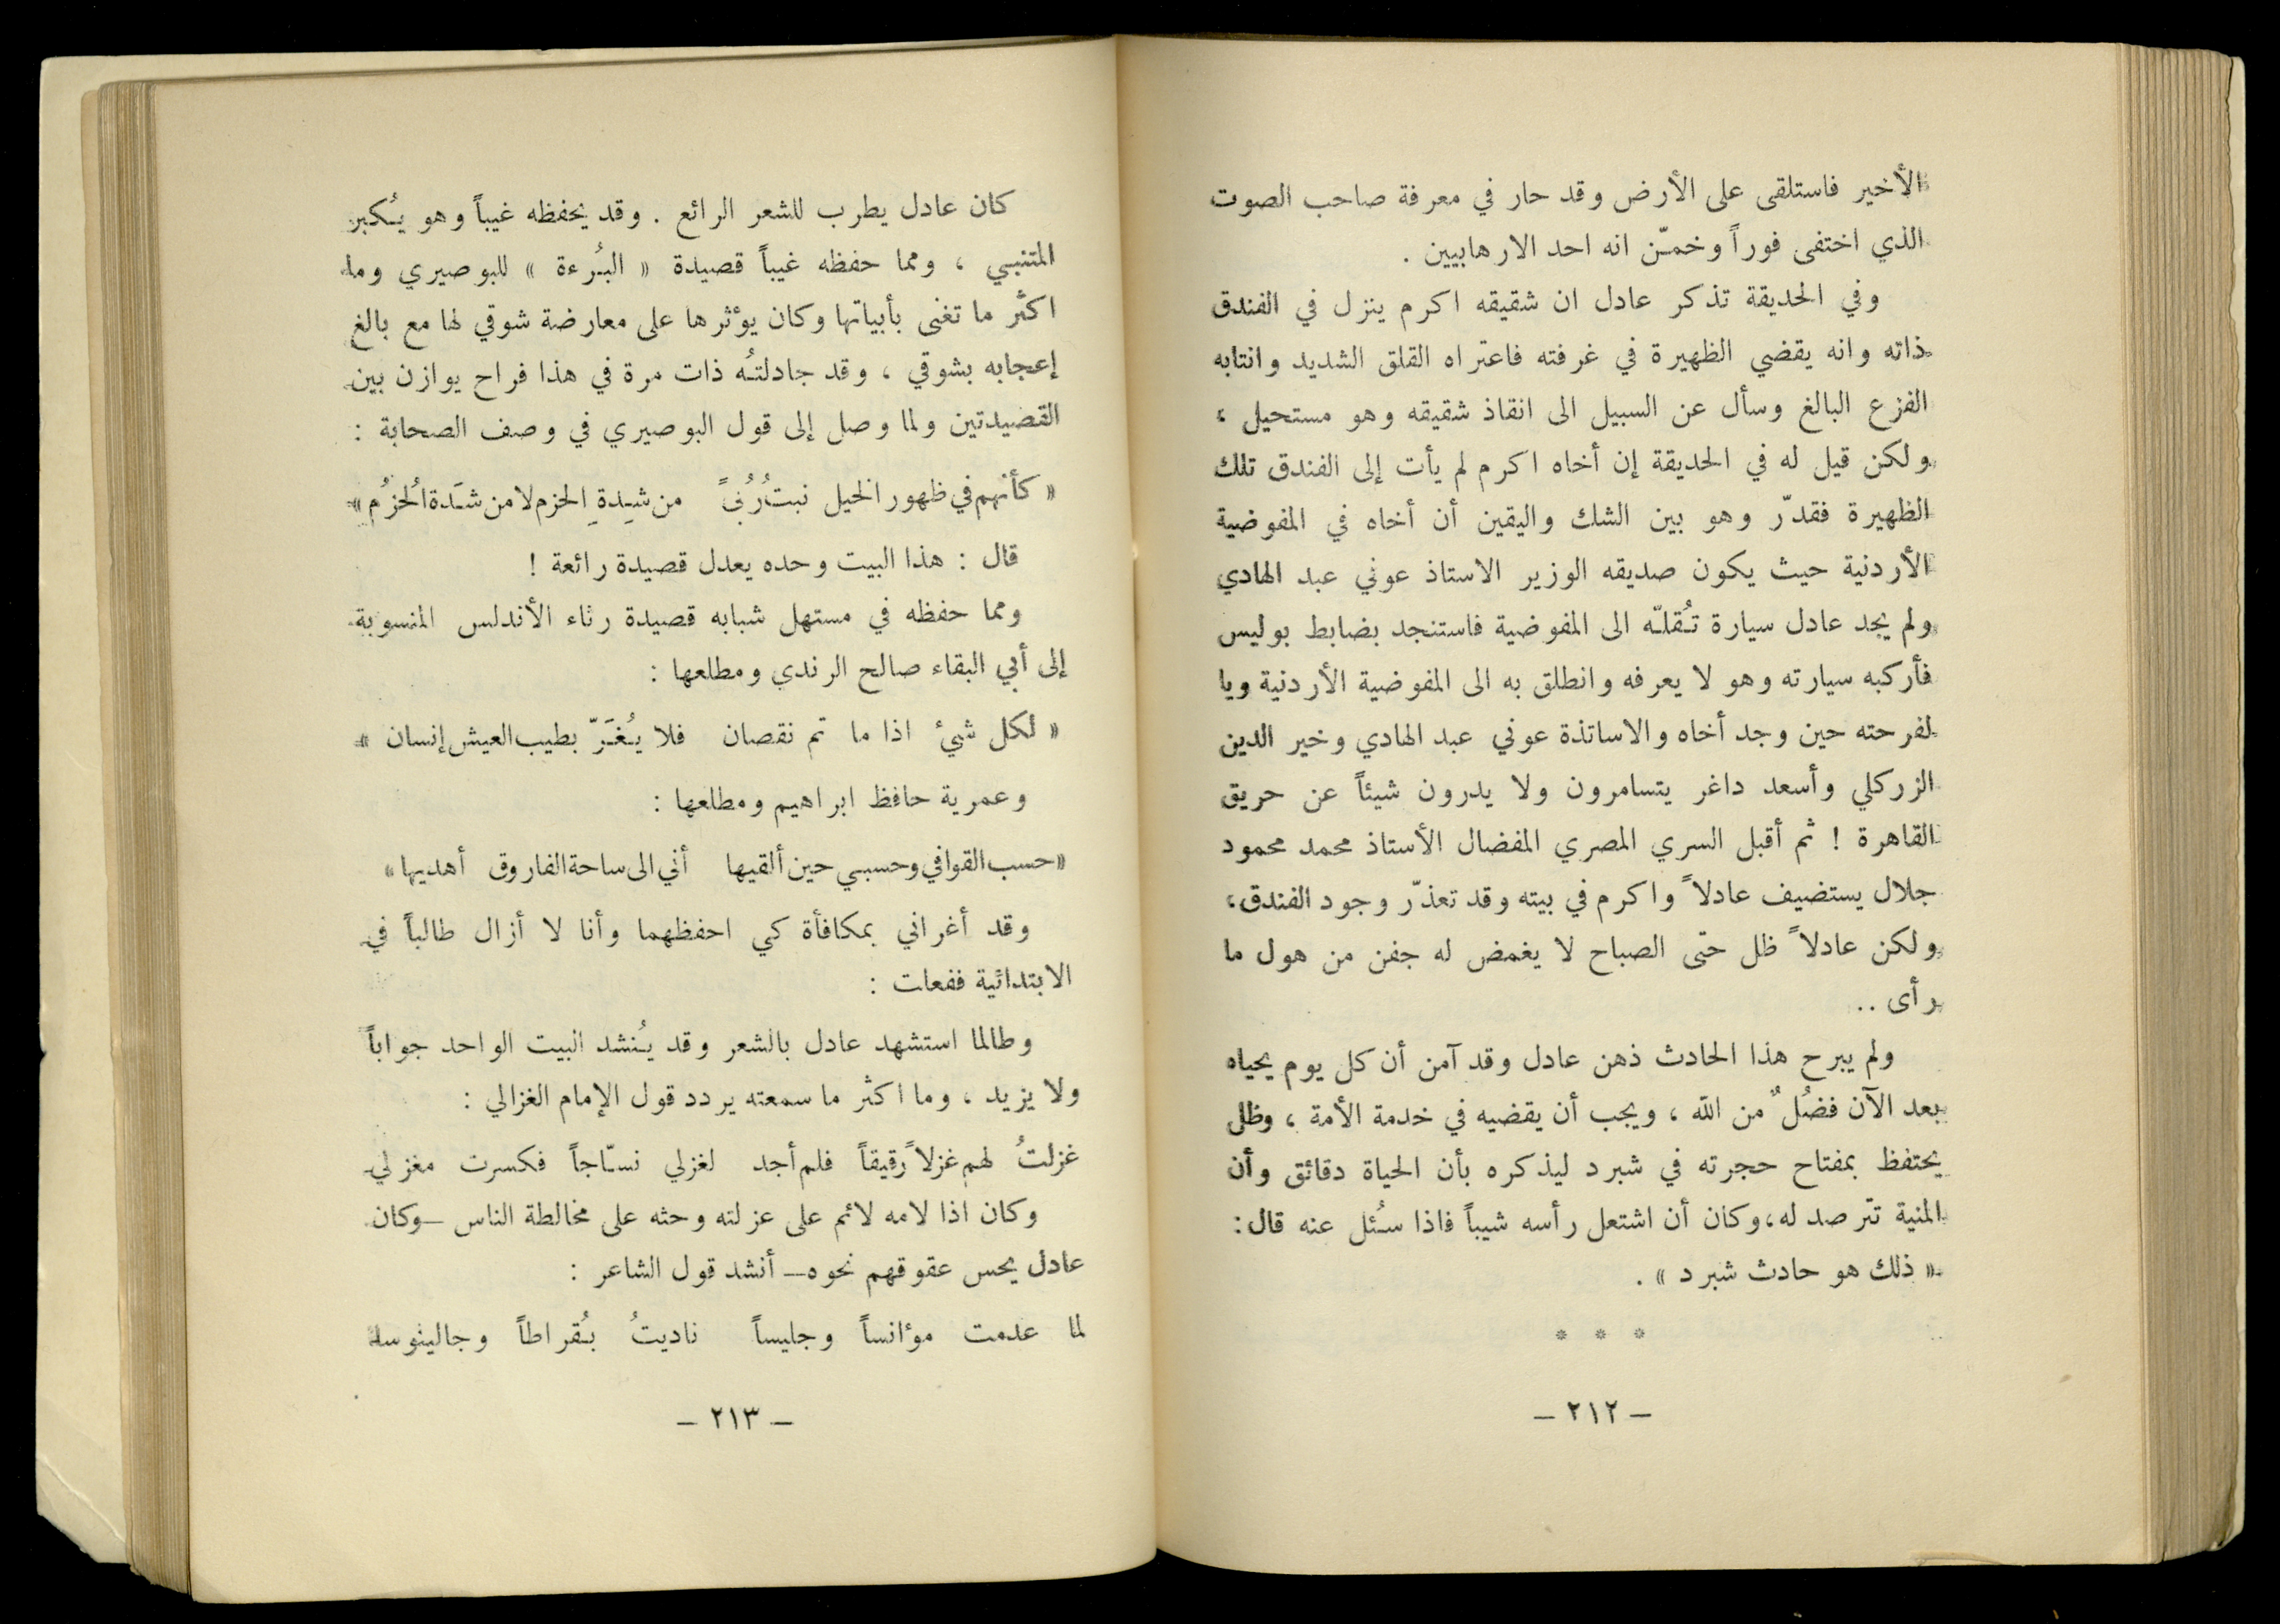 الأخير فاستلقى على الأرض وقد حار في معرفة صاحب الصوت
الذي اختفى فوراً وخمّن انه احد الارهابيين .
وفي الحديقة تذكر عادل ان شقيقه اكرم ينزل في الفندق
ذاته وانه يقضي الظهيرة في غرفته فاعتراه القلق الشديد وانتابه
الفزع البالغ وسأل عن السبيل الى انقاذ شقيقه وهو مستحيل ،
ولكن قيل له في الحديقة إن أخاه اكرم لم يأت إلى الفندق تلك
الظهيرة فقدّر وهو بين الشك واليقين أن أخاه في المفوضية
الأردنية حيث يكون صديقه الوزير الاستاذ عوني عبد الهادي
ولم يجد عادل سيارة تُقلّه الى المفوضية فاستنجد بضابط بوليس
فأركبه سيارته وهو لا يعرفه وانطلق به الى المفوضية الأردنية ويا
لفرحته حين وجد أخاه والاساتذة عوني عبد الهادي وخير الدين
الزركلي وأسعد داغر يتسامرون ولا يدرون شيئاً عن حريق
القاهرة ! ثم أقبل السري المصري المفضال الأستاذ محمد محمود
جلال يستضيف عادلاً واكرم في بيته وقد تعذّر وجود الفندق،
ولكن عادلاً ظل حتى الصباح لا يغمض له جفن من هول ما
رأى ..
ولم يبرح هذا الحادث ذهن عادل وقد آمن أن كل يوم يحياه
بعد الآن فضُلٌ من الله ، ويجب أن يقضيه في خدمة الأمة ، وظل
يحتفظ بمفتاح حجرته في شبرد ليذكره بأن الحياة دقائق وأن
المنية تترصد له، وكان أن اشتعل رأسه شيباً فاذا سُئل عنه قال :
« ذلك هو حادث شبرد » .
* * *
– ٢١٢ –
كان عادل يطرب للشعر الرائع . وقد يحفظه غيباً وهو يُكبر
المتنبي ، ومما حفظه غيباً قصيدة « البُرءة » للبوصيري وما
اكثر ما تغنى بأبياتها وكان يؤثرها على معارضة شوقي لها مع بالغ
إعجابه بشوقي ، وقد جادلتُه ذات مرة في هذا فراح يوازن بين
القصيدتين ولما وصل إلى قول البوصيري في وصف الصحابة :
« كأنهم في ظهور الخيل نبتُ رُبىً من شِدةِ الحزم لا من شَدة الُحزُم »
قال : هذا البيت وحده يعدل قصيدة رائعة !
ومما حفظه في مستهل شبابه قصيدة رثاء الأندلس المنسوبة
إلى أبي البقاء صالح الرندي ومطلعها :
« لكل شيئ اذا ما تم نقصان فلا يُغَرّ بطيب العيش إنسان »
وعمرية حافظ ابراهيم ومطلعها :
« حسب القوافي وحسبي حين ألقيها أني الى ساحة الفاروق أهديها »
وقد أغراني بمكافأة كي احفظهما وأنا لا أزال طالباً في
الابتدائية ففعلت :
وطالما استشهد عادل بالشعر وقد يُنشد البيت الواحد جواباً
ولا يزيد ، وما اكثر ما سمعته يردد قول الإمام الغزالي :
غزلتُ لهم غزلاً رقيقاً فلم أجد لغزلي نسّاجاً فكسرت مغزلي
وكان اذا لامه لائم على عزلته وحثه على مخالطة الناس – وكان
عادل يحس عقوقهم نحوه – أنشد قول الشاعر :
لما عدمت مؤانساً وجليساً ناديتُ بُقراطاً وجالينوسا
– ٢١٣ –